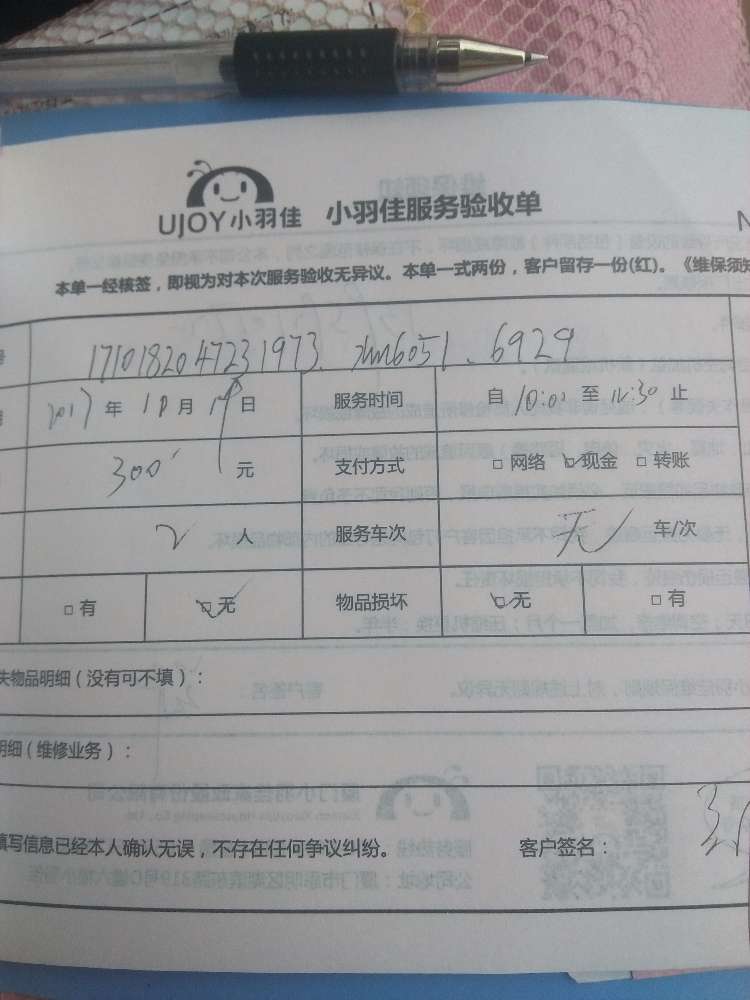 UJOY小羽佳 小羽佳服务验收单
本单一经核签，即视为对本次服务验收无异议。本单一式两份，客户留存一份(红)。《维保须知
1710182047231973. xm6051. 6929
2017年10月19日 服务时间 自10:00至12:30止
300元 支付方式 □网络 ☑现金 □转账
2人 服务车次 无 车/次
□有 ☑无 物品损坏 ☑无 □有
失物品明细（没有可不填）：
明细（维修业务）：
填写信息已经本人确认无误，不存在任何争议纠纷。 客户签名：